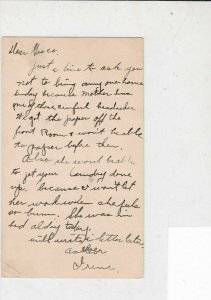 Dear Grace.
Just a line to ask you
not to bring any one home
today because mother has
one of those awful headaches
she got the paper off the
front Room & won't be able
to paper before then.
Also she wont be able
to get your Laundry done
up. because I won't let
her work when she feels
so bum. She was in
bed all day today.
will write letter later
as ever
Irene.